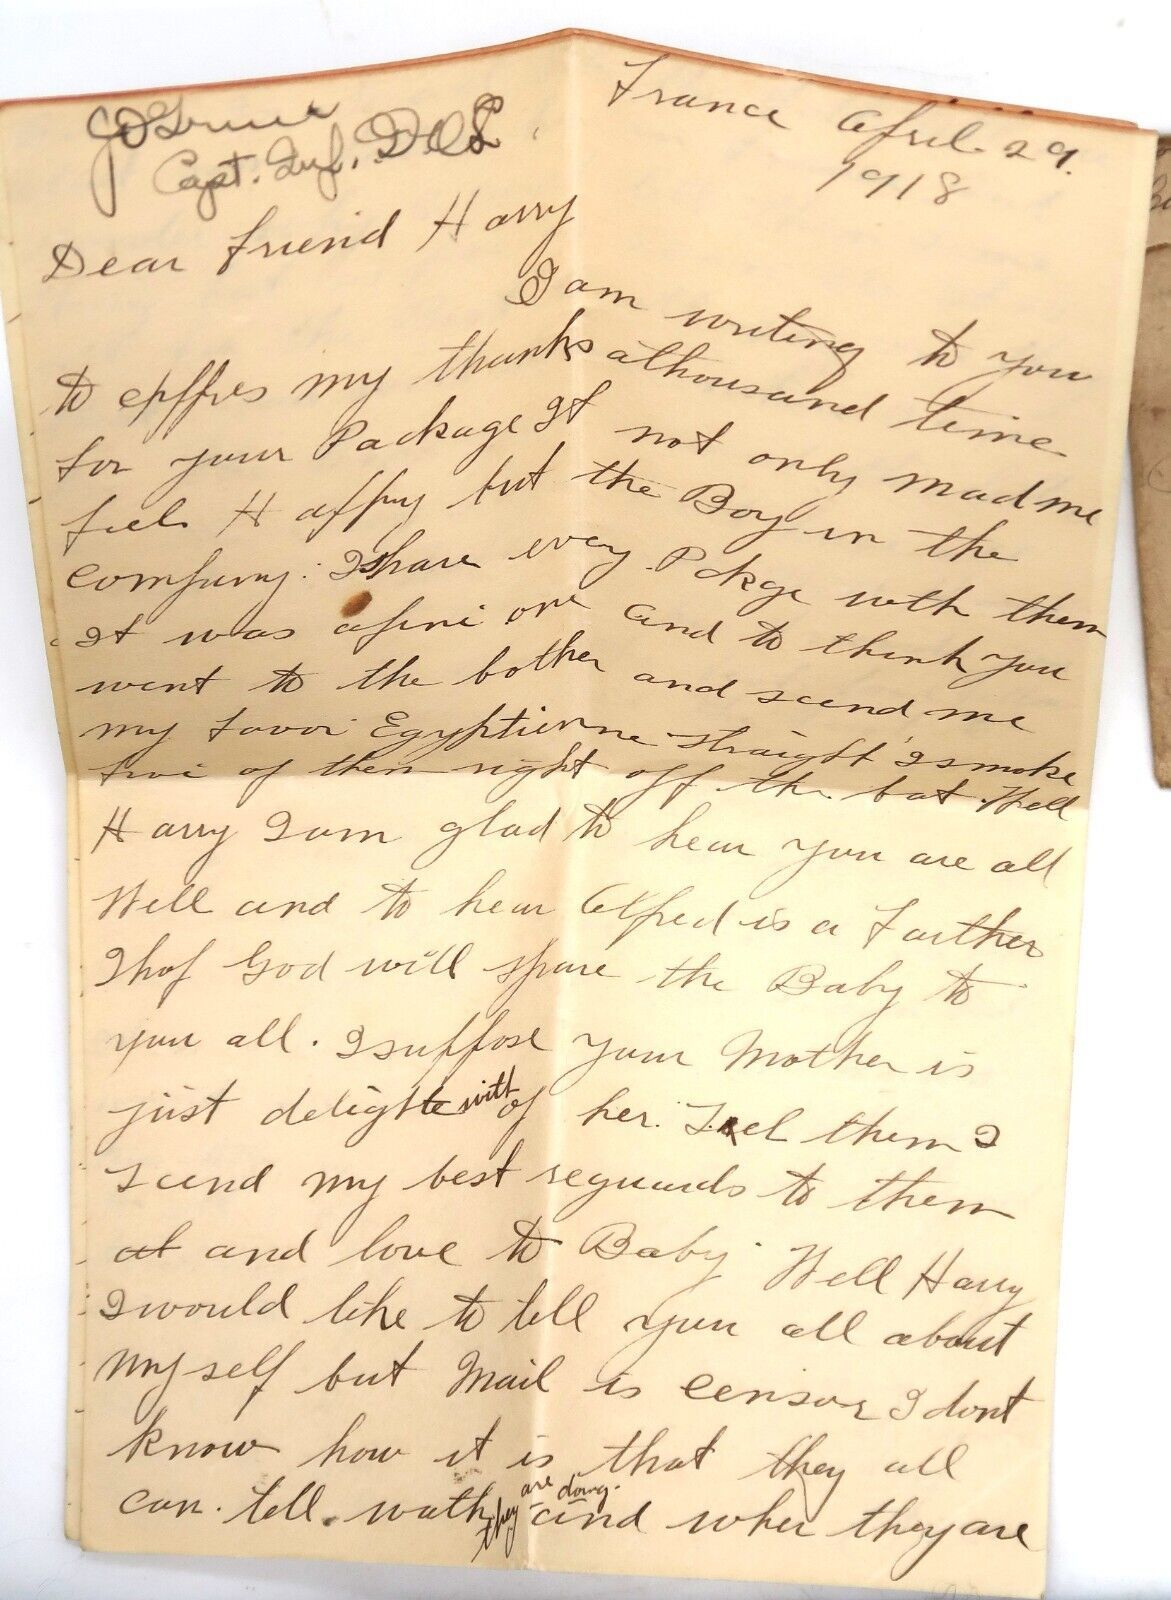 Capt. Inf.
France April 29.
1918
Dear friend Harry
I am writing to you
to epffres my thanks athousand time
for your Package It not only mad me
feel Happy but the Boy in the
company. I share every Pckge with them
It was afini one and to think you
went to the bother and scend me
my favor Egyptienne straight I smoke
two of them right off the bat. Well
Harry I am glad to hear you are all
Well and to hear Alfred is a Farther
I hop God will spare the Baby to
you all. I suppose your Mother is
just delighte with of her. Teel them I
scend my best reguards to them
and love to Baby. Well Harry
I would like to tell you all about
myself but Mail is censor I dont
know how it is that they all
can tell wath they are doing. and wher they are